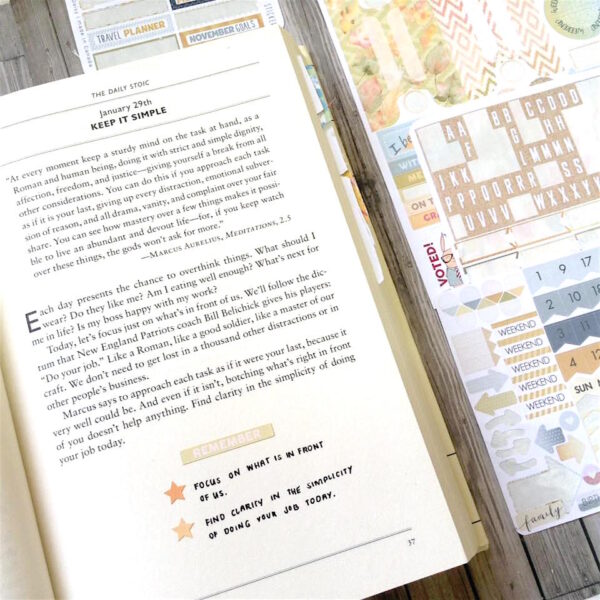 TRAVEL PLANNER
NOVEMBER GOALS
THE DAILY STOIC
January 29th
KEEP IT SIMPLE
“At every moment keep a sturdy mind on the task at hand, as a
Roman and human being, doing it with strict and simple dignity,
affection, freedom, and justice—giving yourself a break from all
other considerations. You can do this if you approach each task
as if it is your last, giving up every distraction, emotional subver-
sion of reason, and all drama, vanity, and complaint over your fair
share. You can see how mastery over a few things makes it possi-
ble to live an abundant and devout life—for, if you keep watch
over these things, the gods won’t ask for more.”
—MARCUS AURELIUS, MEDITATIONS, 2.5
Each day presents the chance to overthink things. What should I
wear? Do they like me? Am I eating well enough? What’s next for
me in life? Is my boss happy with my work?
Today, let’s focus just on what’s in front of us. We’ll follow the dic-
tum that New England Patriots coach Bill Belichick gives his players:
“Do your job.” Like a Roman, like a good soldier, like a master of our
craft. We don’t need to get lost in a thousand other distractions or in
other people’s business.
Marcus says to approach each task as if it were your last, because it
very well could be. And even if it isn’t, botching what’s right in front
of you doesn’t help anything. Find clarity in the simplicity of doing
your job today.
REMEMBER
FOCUS ON WHAT IS IN FRONT
OF US.
FIND CLARITY IN THE SIMPLICITY
OF DOING YOUR JOB TODAY.
37
WEEKEND
VOTED!
1 9 10
2 10
3 11
4 12
WEEKEND
WEEKEND
WEEKEND
WEEKEND
WEEKEND
SUN
family